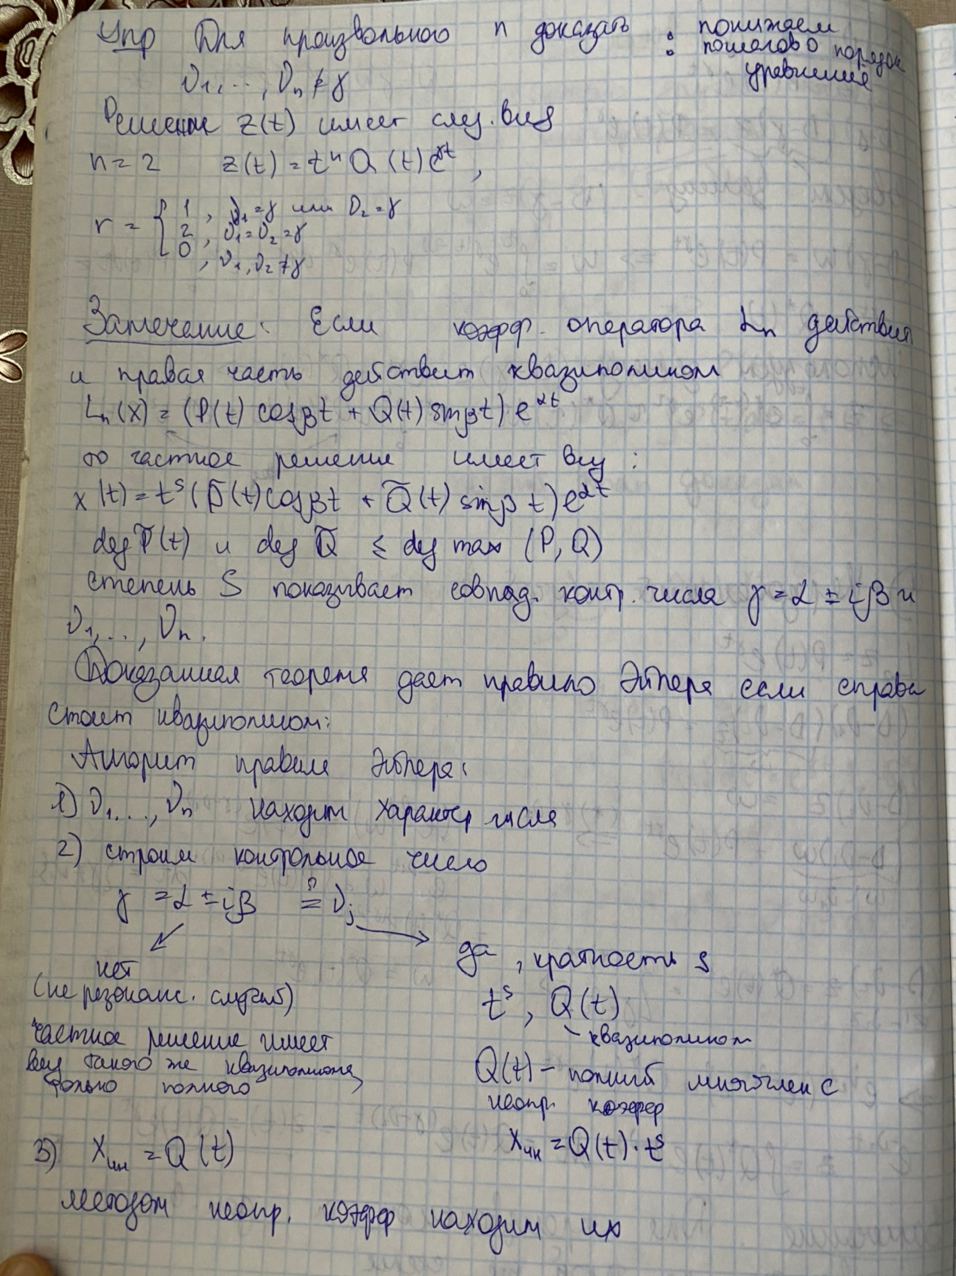 Упр Для произвольного n доказать : понижаем
пошагово порядок
уравнения
ν₁,..., νₙ ≠ γ
Решение z(t) имеет след. вид
n = 2 z(t) = tⁿ Q(t) e^γt,
r = { 1, ν₁=γ или ν₂=γ
2, ν₁=ν₂=γ
0, ν₁,ν₂≠γ
Замечание: Если коэфф. оператора Lₙ действит
и правая часть действит квазиполином
Lₙ(x) = (P(t) cosβt + Q(t) sinβt) e^αt
то частное решение имеет вид:
x(t) = tˢ (P̃(t) cosβt + Q̃(t) sinβt) e^αt
deg P̃(t) и deg Q̃ ≤ deg max (P, Q)
степень S показывает совпад. контр. числа γ = α ± iβ и
ν₁,..., νₙ.
Доказанная теорема дает правило Эйлера если справа
стоит квазиполином:
Алгоритм правила Эйлера:
1) ν₁..., νₙ находим характер числа
2) строим контрольное число
γ = α ± iβ ?= νⱼ
да, кратность s
нет
(не резонанс. случай)
tˢ, Q(t)
квазиполином
частное решение имеет
вид такого же квазиполинома,
только полного
Q(t) – полный многочлен с
неопр. коэфф
3) xчн = Q(t) xчн = Q(t)·tˢ
методом неопр. коэфф находим их